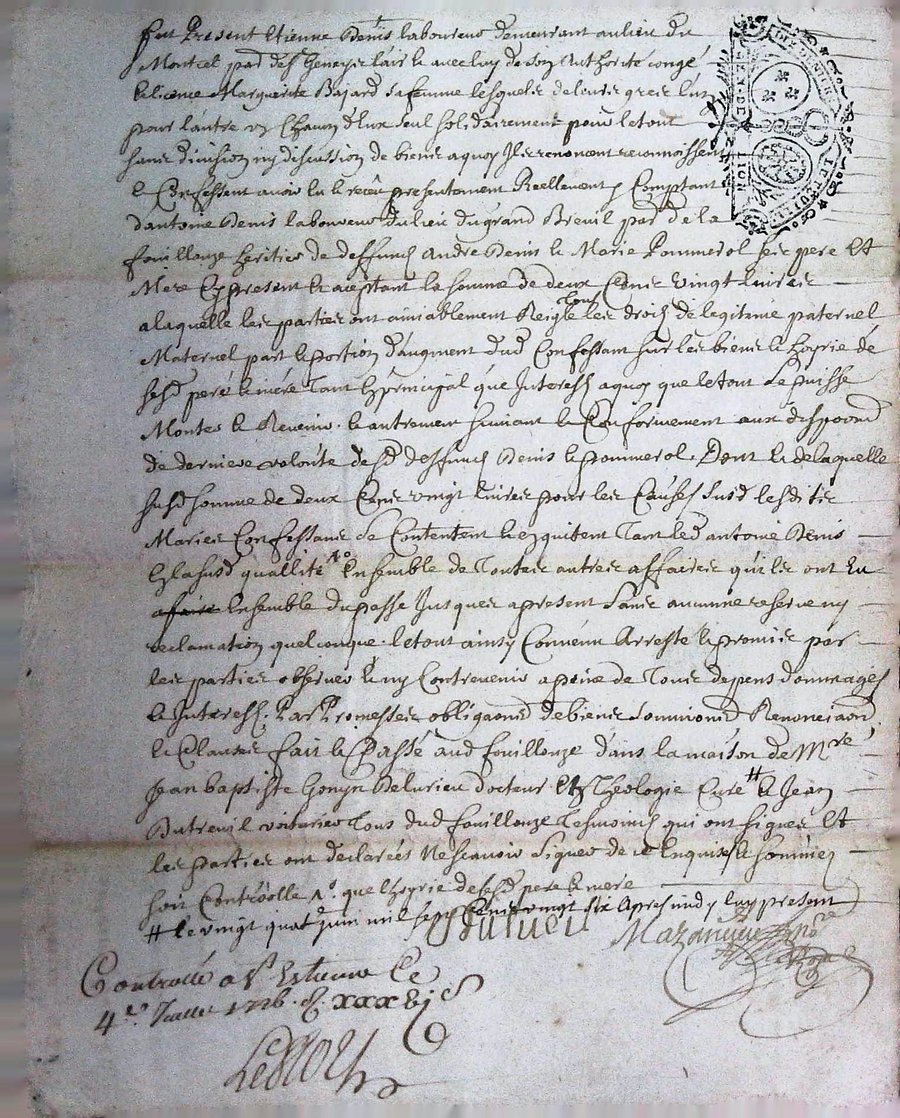 fut Present Etienne Denis laboureur demeurant au lieu du
Montcel par de St Geneys lair le avec luy de son Authorité congé
& licence Marguerite Bajard sa femme lesquels de leurs grés l'un
pour lautre & chaun deux seul solidairement pour le tout
sans division ny discution de biens a quoy Ils renoncent reconnoissent
& Confessent avoir eu & receu presentement Reellement & Comptant
dantoine Denis laboureur du lieu du grand Breuil par de la
fouillouze heritier de deffunts Andre Denis & Marie Pommerol ses pere Et
Mere Cy present & aceptant la somme de deux Cens vingt livres
a laquelle les parties ont aimablement Reiglé tous les droits de legitime paternel
Maternel part & portion daugment dud Confessant sur les biens & hoyrie de
sesd pere & mere tant En principal que Interests a quoy que le tout se puisse
Monter & Revenir & autrement suivant & Conformement aux dispoons
de derniere volonté desd deffunts Denis & pommerol. Dont & de laquelle
susd somme de deux Cens vingt livres pour les Causes susd lesdits
Mariés Confessans se Contentent & en quitent tant led antoine Denis
En la susd quallité 1o Ensemble de toutes autres affaires quils ont Eu
Ensemble du passé Jusques a present sans aucunne reserve ny
reclamation quelconque. le tout ainsy Convenu Arresté & promis par
les parties observer & ny Contrevenir a peine de tous depens dommages
& Interests. Par Promesses obligaons de biens soumions Renonciaons
& Clauses fait & Passé aud fouillouze dans la maison de Mre
Jean baptiste Gonyn Delurieu docteur En Theologie Curé # & Jean
Dutreuil voiturier tous dud fouillouze tesmoins qui ont signés Et
les parties ont declarées Ne scavoir signer de ce Enquises & sommées
soit Controlle 1o. que lhoyrie desd pere & mere
# le vingt quat Juin mil sept Cens vingt six Apres midy luy present
Dutreuil Mazenieu
Controllé a St Estienne Ce
4e. Juillet 1726. R. xxxvj s